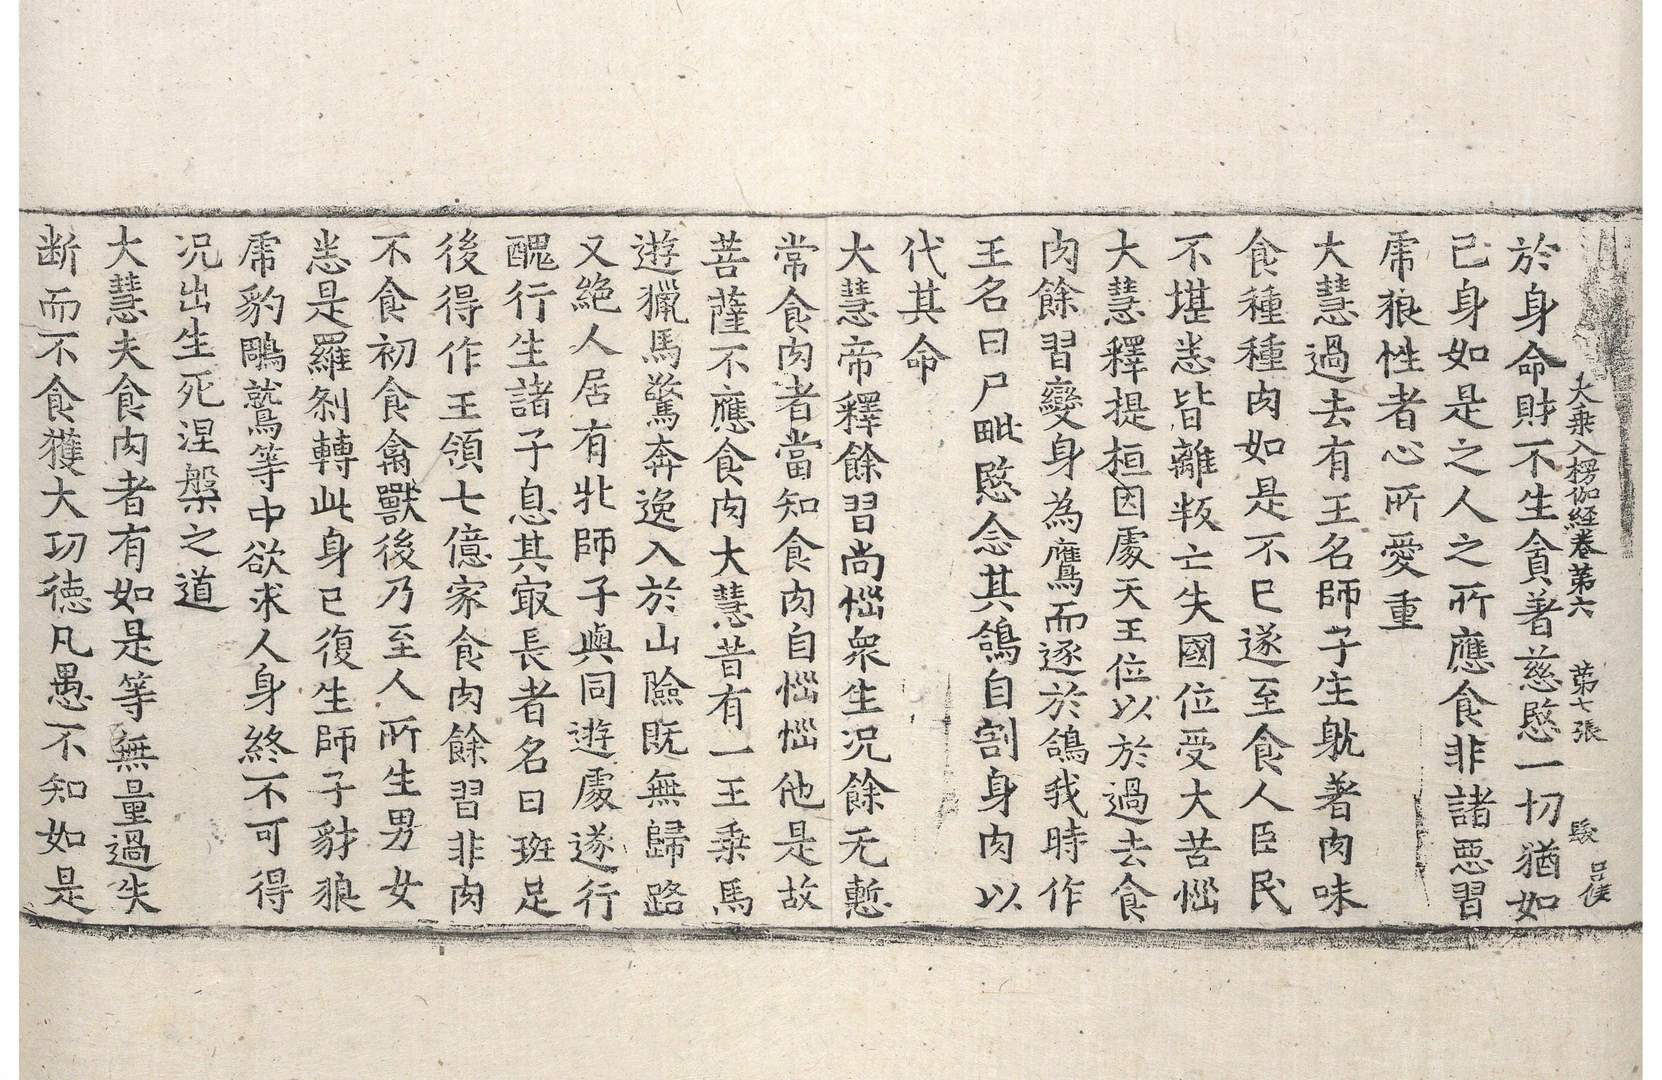 大乘入楞伽経卷第六 第七張 駿
於身命財不生貪著慈愍一切猶如
己身如是之人之所應食非諸惡習
虎狼性者心所愛重
大慧過去有王名師子生躭著肉味
食種種肉如是不已遂至食人臣民
不堪悉皆離叛亡失國位受大苦惱
大慧釋提桓因處天王位以於過去食
肉餘習變身為鷹而逐於鴿我時作
王名曰尸毗愍念其鴿自割身肉以
代其命
大慧帝釋餘習尚惱衆生况餘无慙
常食肉者當知食肉自惱惱他是故
菩薩不應食肉大慧昔有一王乘馬
遊獵馬驚奔逸入於山險既無歸路
又絶人居有牝師子與同遊處遂行
醜行生諸子息其㝡長者名曰班足
後得作王領七億家食肉餘習非肉
不食初食禽獸後乃至人所生男女
悉是羅刹轉此身已復生師子豺狼
虎豹鵰鷲等中欲求人身終不可得
况出生死涅槃之道
大慧夫食肉者有如是等無量過失
断而不食獲大功徳凡愚不知如是